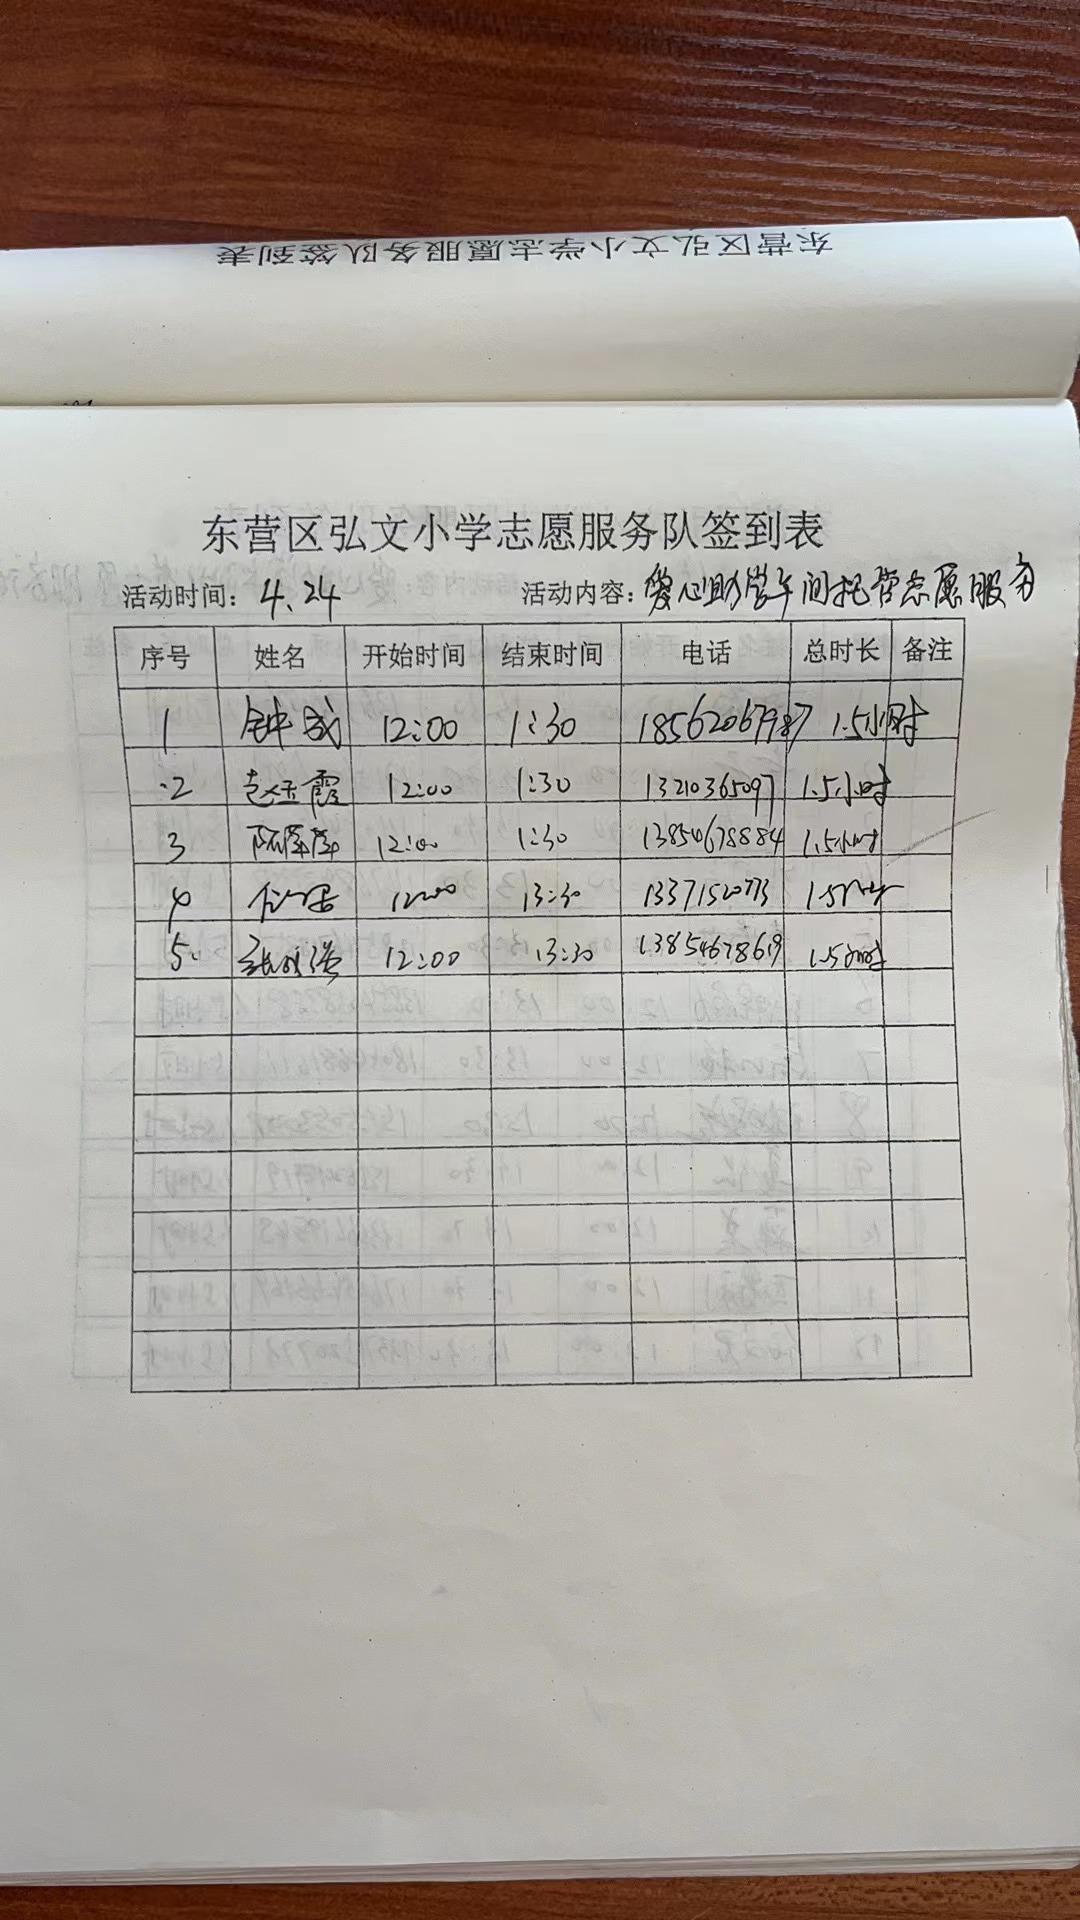 东营区弘文小学志愿服务队签到表
东营区弘文小学志愿服务队签到表
活动时间：4.24 活动内容：爱心助学午间托管志愿服务
序号 姓名 开始时间 结束时间 电话 总时长 备注
1 钟成 12:00 1:30 18562067987 1.5小时
2 赵玉霞 12:00 1:30 13210365097 1.5小时
3 陈萍萍 12:00 1:30 13854678884 1.5小时
4 12:00 13:30 13371520773 1.5小时
5. 12:00 13:30 13854678619 1.5小时